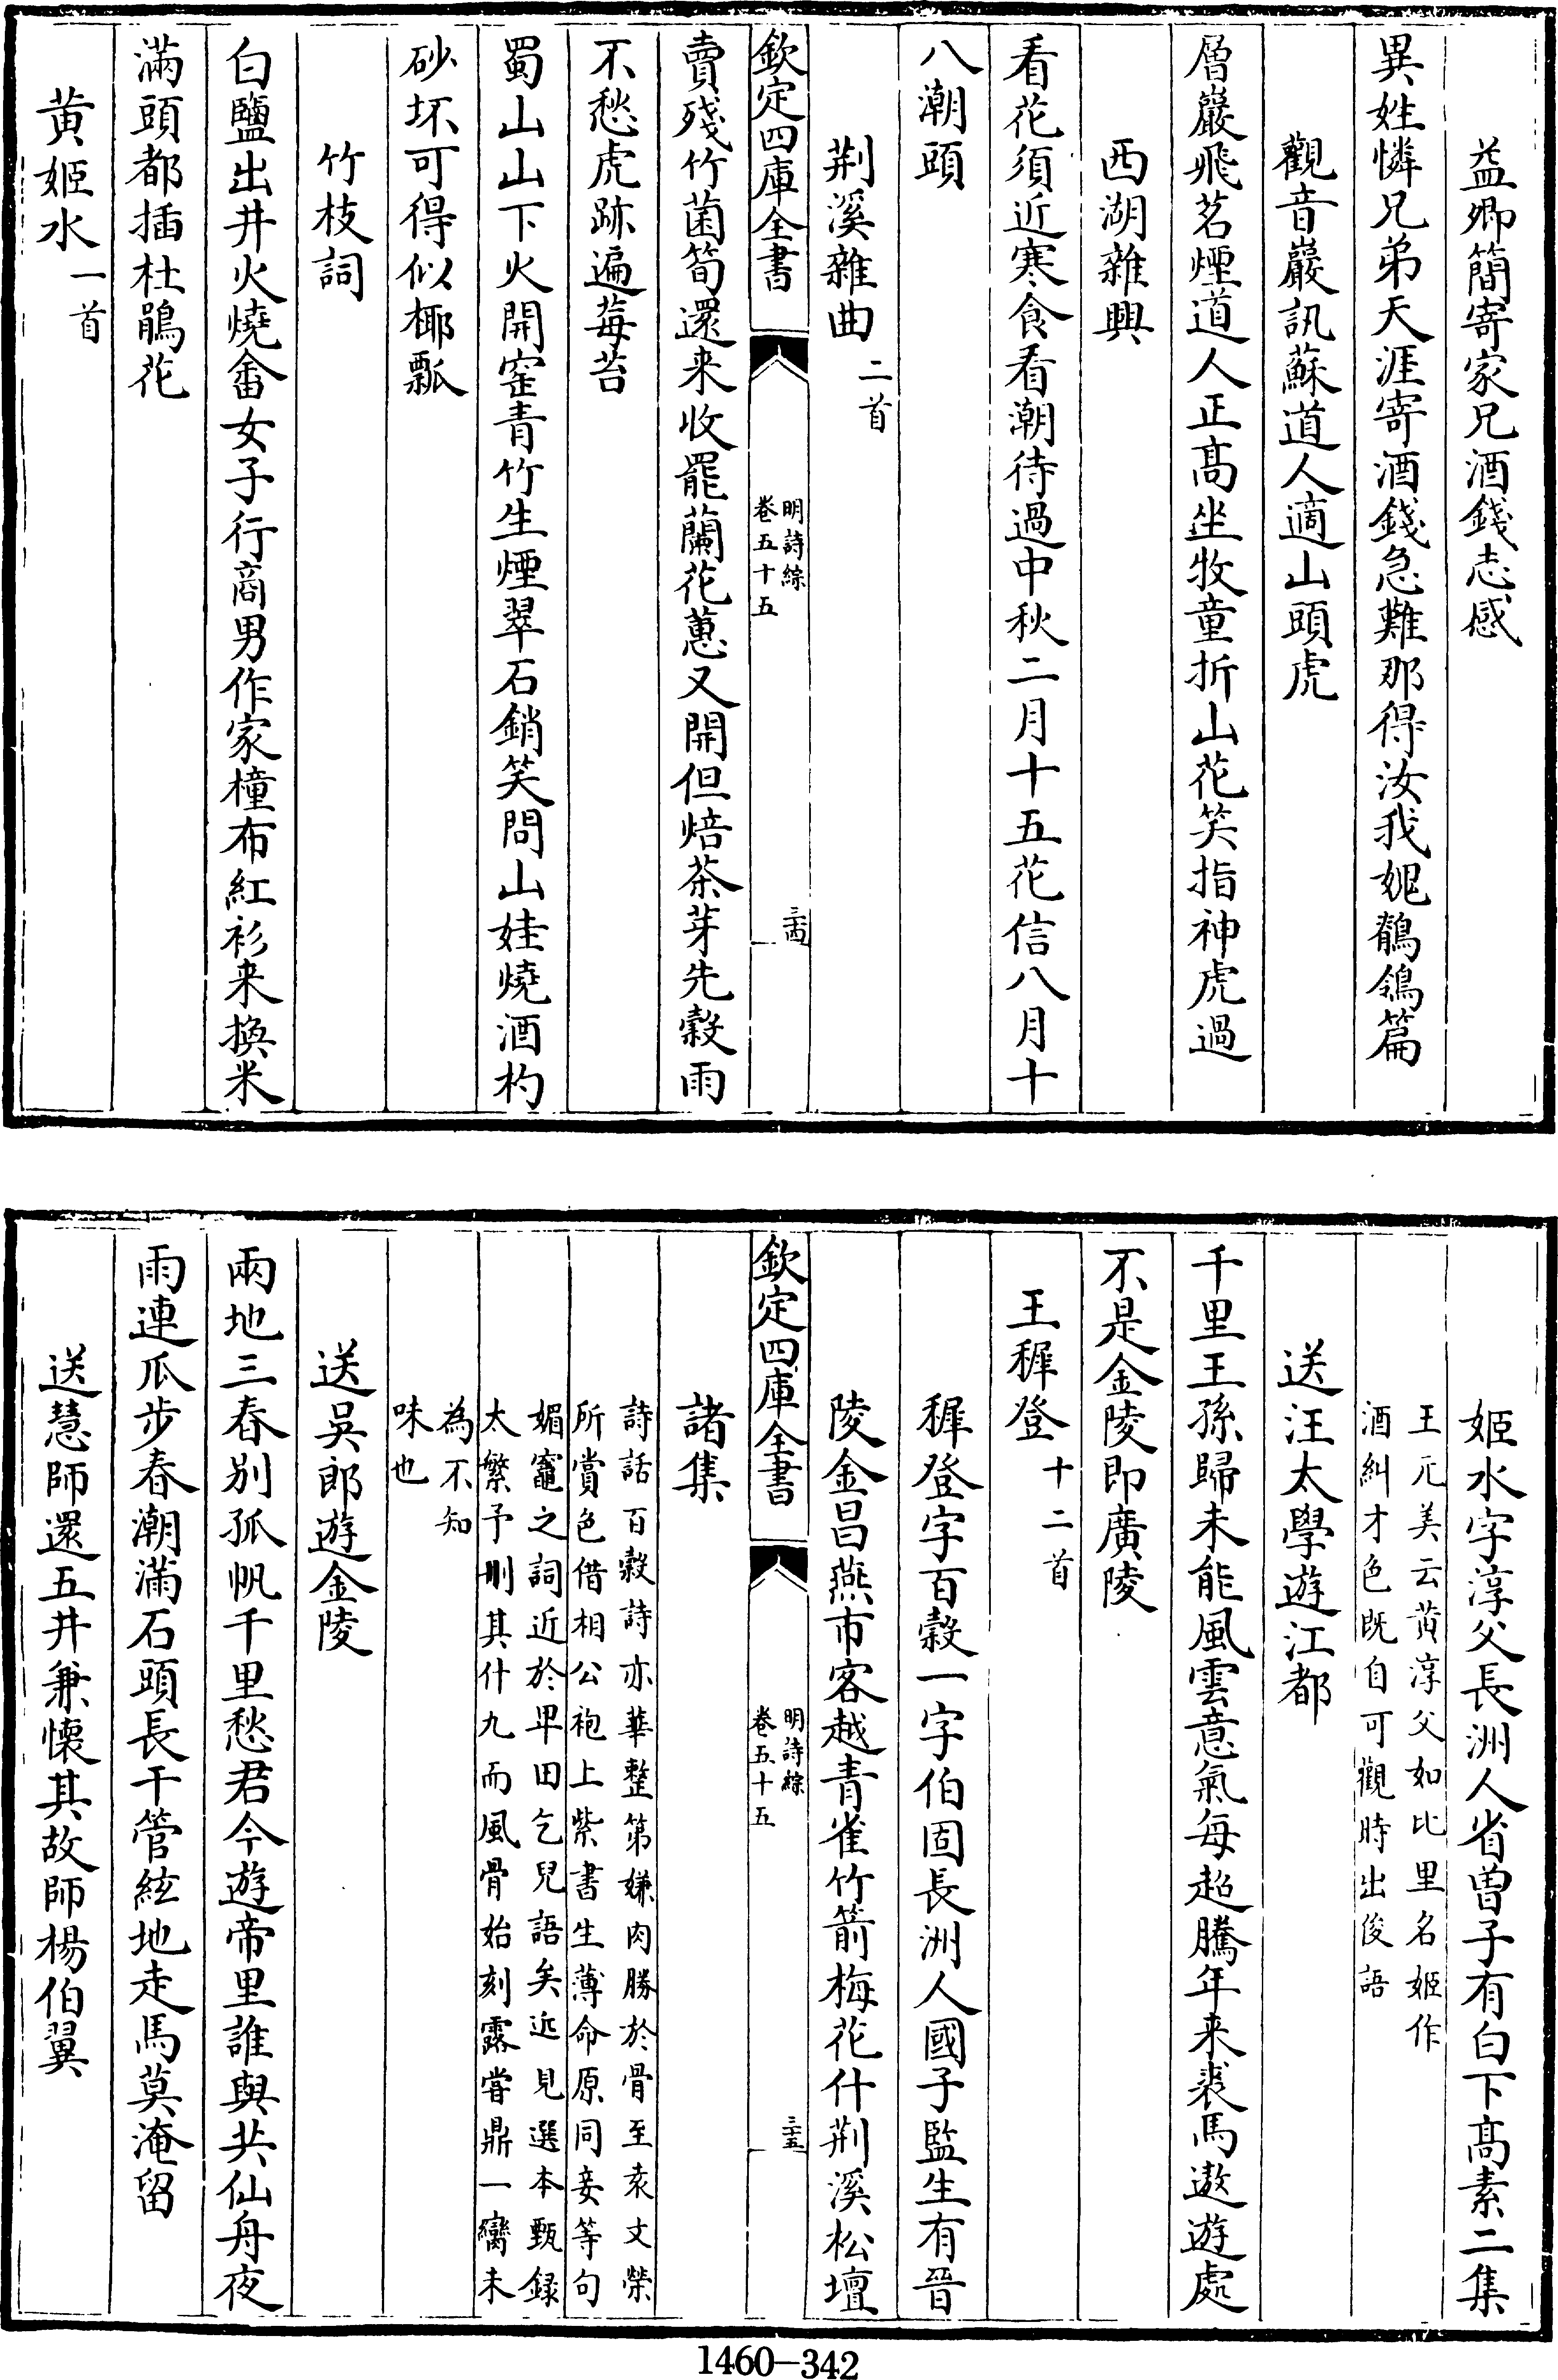 益卿簡寄家兄酒錢志感
異姓憐兄弟天涯寄酒錢急難那得汝我媿鶺鴒篇
觀音巖訊蘇道人適山頭虎
層巖飛茗煙道人正高坐牧童折山花笑指神虎過
西湖雜興
看花須近寒食看潮待過中秋二月十五花信八月十
八潮頭
荆溪雜曲二首
欽定四庫全書
明詩綜
卷五十五
三十四
賣殘竹菌筍還来收罷蘭花蕙又開但焙茶芽先穀雨
不愁虎跡遍莓苔
蜀山山下火開窑青竹生煙翠石銷笑問山娃燒酒杓
砂坏可得似椰瓢
竹枝詞
白鹽出井火燒畬女子行商男作家橦布紅衫来換米
滿頭都插杜鵑花
黄姬水一首
姬水字淳父長洲人省曾子有白下髙素二集
王元美云黄淳父如比里名姬作
酒糾才色既自可觀時出俊語
送汪太學遊江都
千里王孫歸未能風雲意氣每超騰年来裘馬遨遊處
不是金陵即廣陵
王穉登十二首
穉登字百穀一字伯固長洲人國子監生有晉
陵金昌燕市客越青雀竹箭梅花什荆溪松壇
欽定四庫全書
明詩綜
卷五十五
三十五
諸集
詩話百穀詩亦華整第嫌肉勝於骨至袁文榮
所賞色借相公袍上紫書生薄命原同妾等句
媚竈之詞近於卑田乞兒語矣近見選本甄録
太繁予刪其什九而風骨始刻露嘗鼎一臠未
為不知
味也
送吳郎遊金陵
兩地三春别孤帆千里愁君今遊帝里誰與共仙舟夜
雨連瓜步春潮滿石頭長干管絃地走馬莫淹留
送慧師還五井兼懷其故師楊伯翼
1460-342